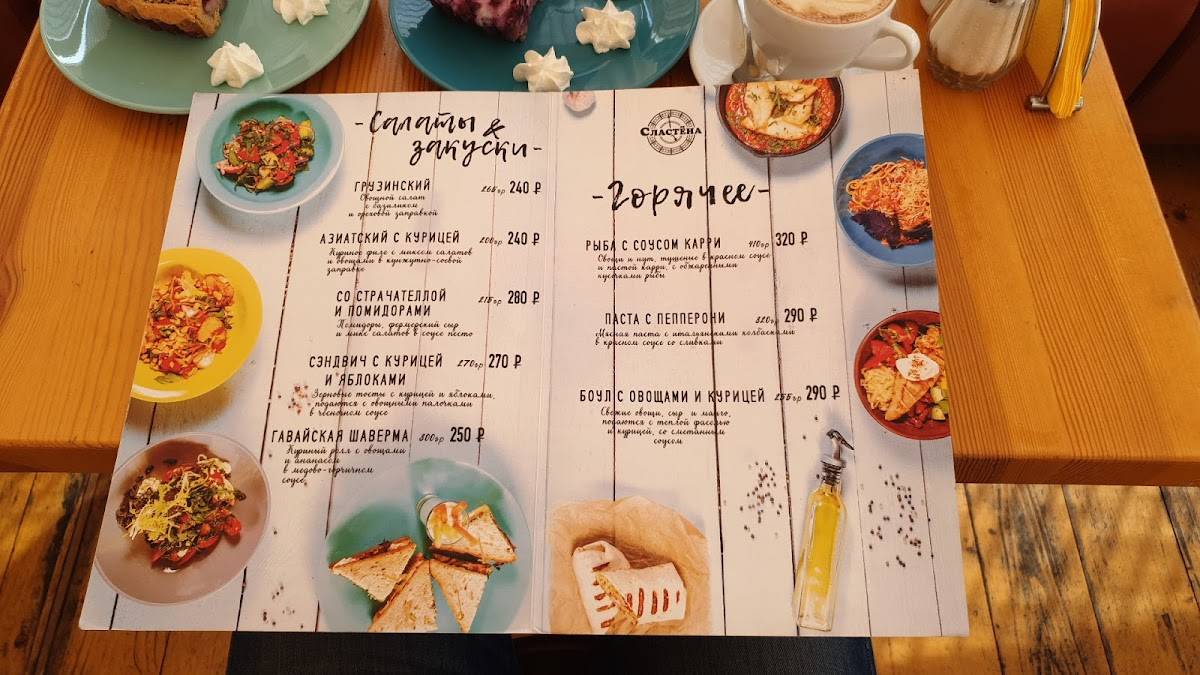 -Салаты &
закуски-
ГРУЗИНСКИЙ 265гр 240 ₽
Овощной салат
с базиликом
и ореховой заправкой
АЗИАТСКИЙ С КУРИЦЕЙ 200гр 240 ₽
Куриное филе с миксом салатов
и овощами в кунжутно-соевой
заправке
СО СТРАЧАТЕЛЛОЙ 215гр 280 ₽
И ПОМИДОРАМИ
Помидоры, фермерский сыр
и микс салатов в соусе песто
СЭНДВИЧ С КУРИЦЕЙ 270гр 270 ₽
И ЯБЛОКАМИ
Зерновые тосты с курицей и яблоками,
подаются с овощными палочками
в чесночном соусе
ГАВАЙСКАЯ ШАВЕРМА 300гр 250 ₽
Куриный ролл с овощами
и ананасом
в медово-горчичном
соусе
СЛАСТЁНА
-Горячее-
РЫБА С СОУСОМ КАРРИ 410гр 320 ₽
Овощи и нут, тушеные в красном соусе
и пастой карри, с обжаренными
кусочками рыбы
ПАСТА С ПЕППЕРОНИ 320гр 290 ₽
Мясная паста с итальянскими колбасками
в красном соусе со сливками
БОУЛ С ОВОЩАМИ И КУРИЦЕЙ 255гр 290 ₽
Свежие овощи, сыр и манго,
подаются с теплой фасолью
и курицей, со сметанным
соусом